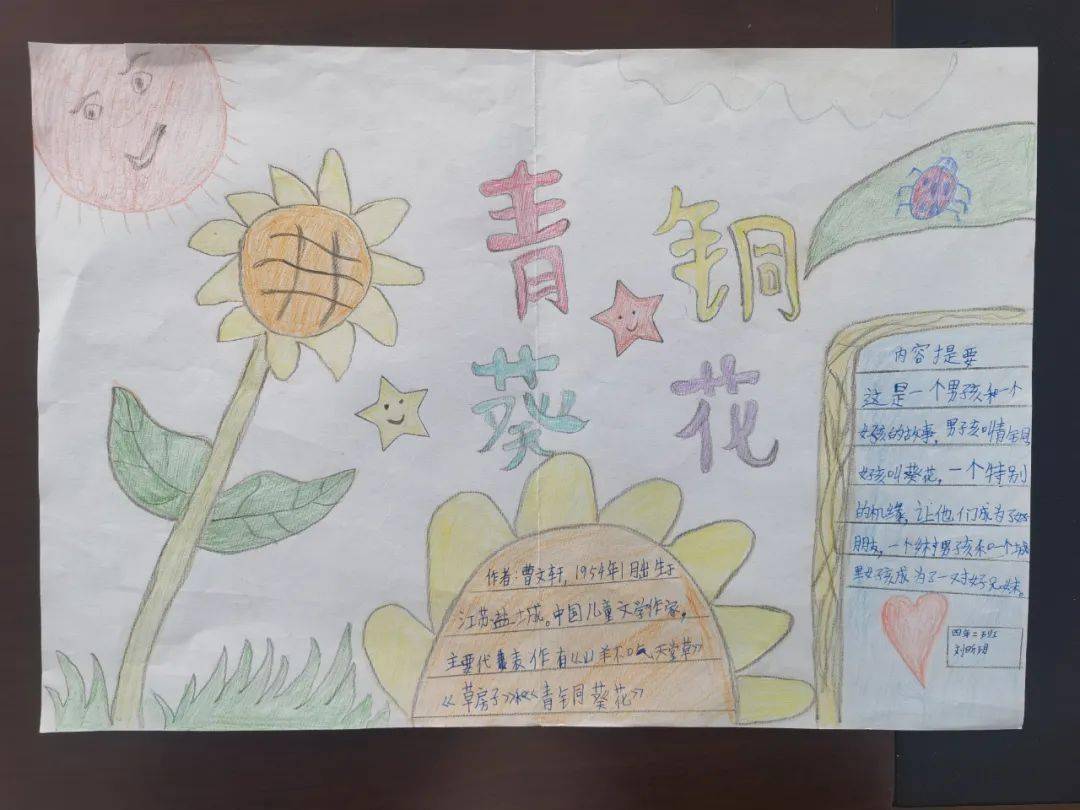 青铜
葵花
内容提要
这是一个男孩和一个
女孩的故事,男孩叫青铜
女孩叫葵花,一个特别
的机缘,让他们成为了好
朋友,一个乡村男孩和一个城
里女孩成为了一对好兄妹。
作者:曹文轩,1954年1月出生于
江苏盐城。中国儿童文学作家,
主要代表作有《山羊不吃天堂草》
《草房子》和《青铜葵花》
四年二班
刘昕